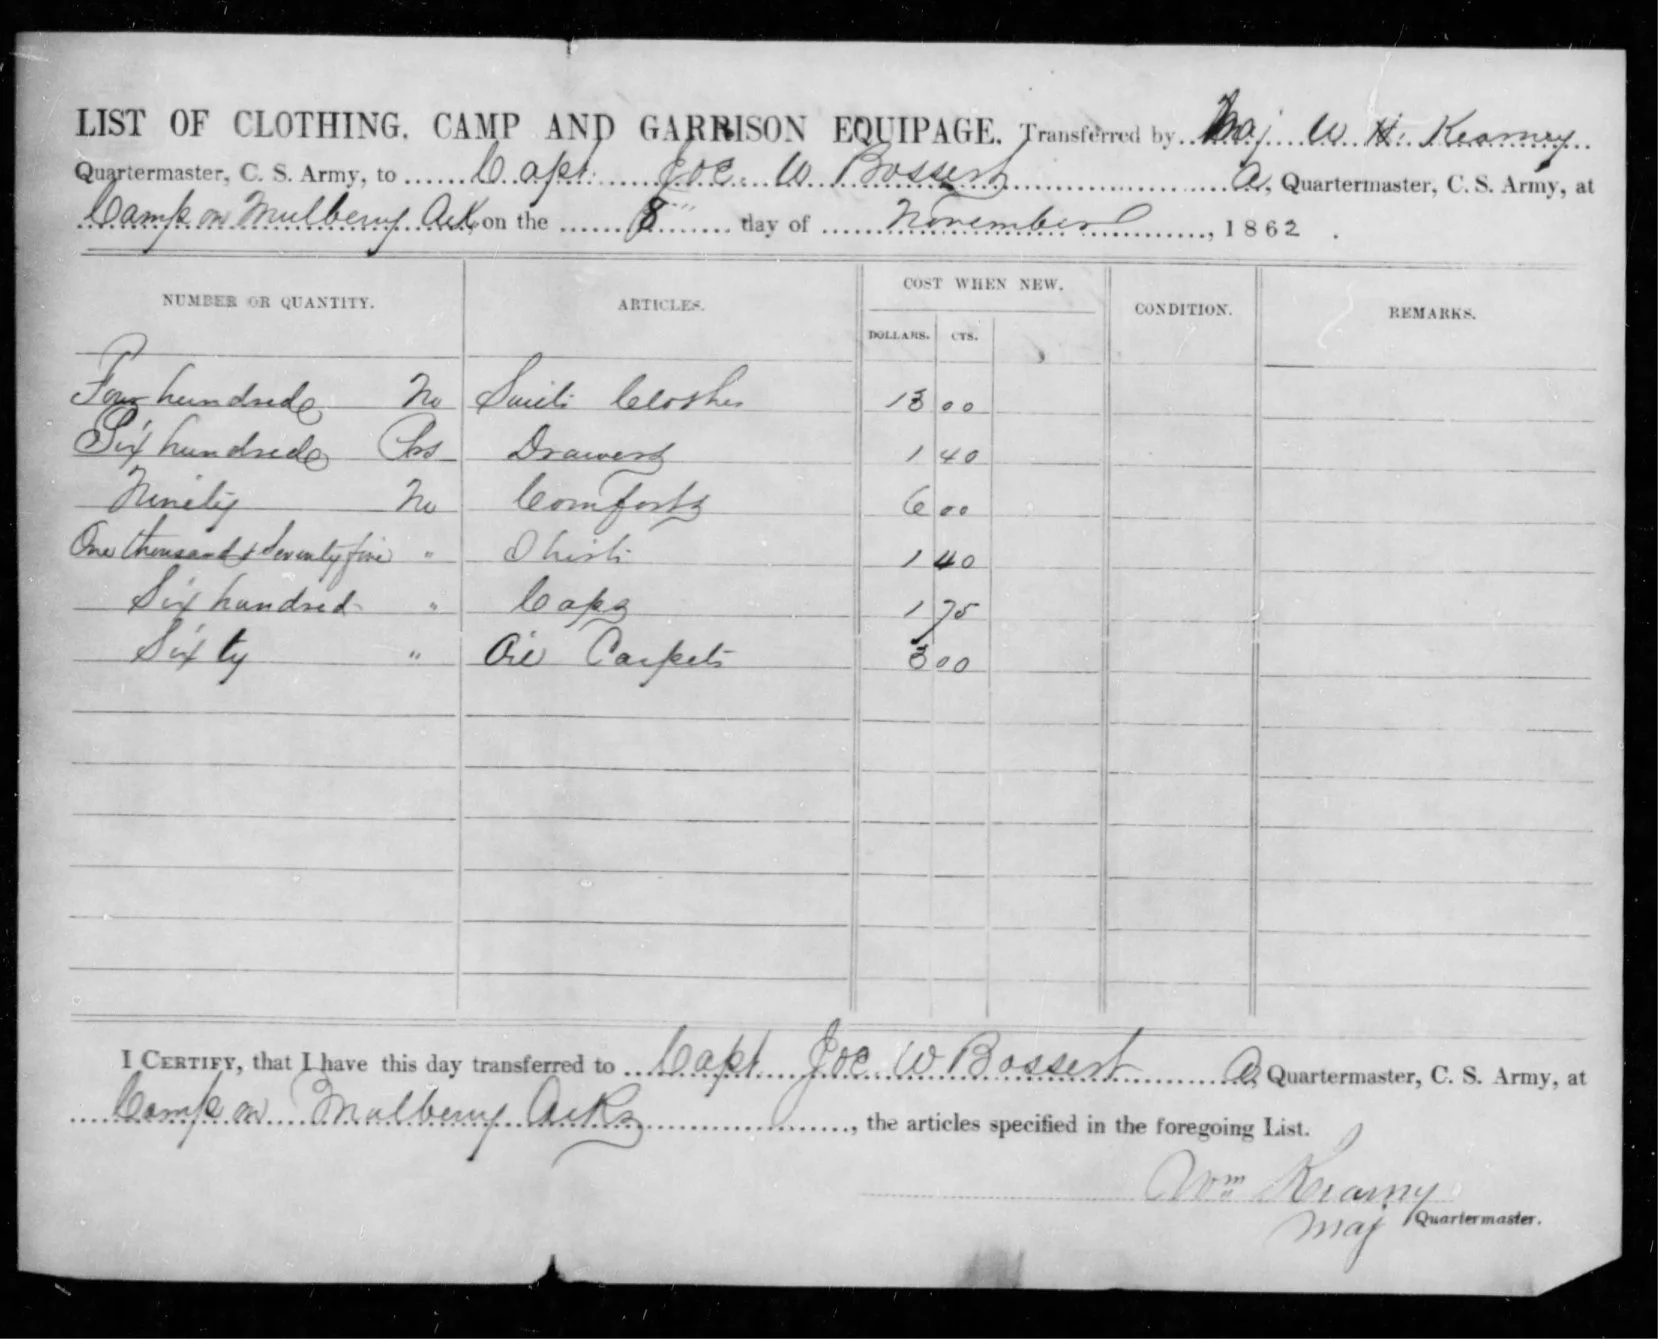 LIST OF CLOTHING, CAMP AND GARRISON EQUIPAGE. Transferred by Maj W. H. Kearney
Quartermaster, C. S. Army, to Capt. Joe. W Bossert A, Quartermaster, C. S. Army, at
Camp on Mulberry Ark, on the 8" day of November, 1862.
NUMBER OR QUANTITY. ARTICLES. COST WHEN NEW. CONDITION. REMARKS.
DOLLARS. CTS.
Four hundred No Suits Clothes 13 00
Six hundred Prs Drawers 1 40
Ninety No Comforts 6 00
One thousand & Seventy five " Shirts 1 40
Six hundred " Caps 1 75
Sixty " Oil Carpets 3 00
I CERTIFY, that I have this day transferred to Capt Joe W Bossert A, Quartermaster, C. S. Army, at
Camp on Mulberry Arks, the articles specified in the foregoing List.
Wm Kearny
Maj Quartermaster.